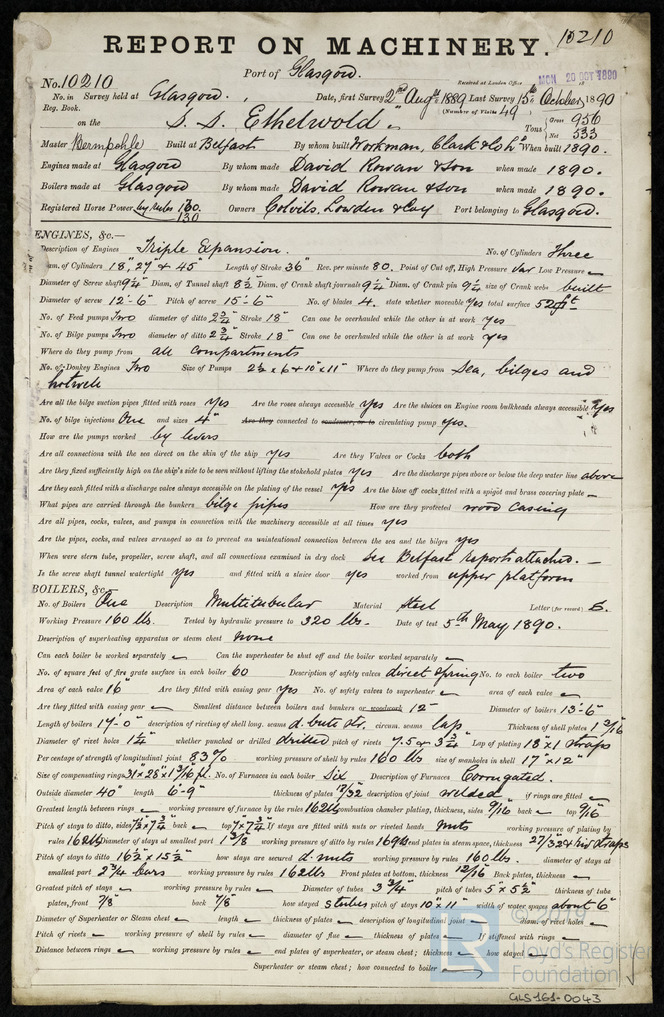 10210
REPORT ON MACHINERY.
Port of Glasgow.
Received at London Office MON 20 OCT 1890
No. 10210
No. in Survey held at Glasgow. Date, first Survey 2nd Augt 1889 Last Survey 15th October 1890
Reg. Book. (Number of Visits 49)
on the S. S. Ethelwold Tons Gross 956 Net 533
Master Built at Belfast By whom built Workman, Clark & Co Ld When built 1890.
Engines made at Glasgow By whom made David Rowan & Son when made 1890.
Boilers made at Glasgow By whom made David Rowan & Son when made 1890.
Registered Horse Power by rules 130 Owners Colvils, Lowden & Coy Port belonging to Glasgow.
130
ENGINES, &c.—
Description of Engines Triple Expansion. No. of Cylinders Three
Diam. of Cylinders 18", 27" & 45" Length of Stroke 36" Rev. per minute 80. Point of Cut off, High Pressure var Low Pressure –
Diameter of Screw shaft 9¼" Diam. of Tunnel shaft 8½ Diam. of Crank shaft journals 9¼ Diam. of Crank pin 9¼ size of Crank webs built
Diameter of screw 12'-6" Pitch of screw 15'-6" No. of blades 4. state whether moveable Yes total surface 52 ft
No. of Feed pumps Two diameter of ditto 2¾" Stroke 18" Can one be overhauled while the other is at work yes
No. of Bilge pumps Two diameter of ditto 2¾" Stroke 18" Can one be overhauled while the other is at work yes
Where do they pump from all compartments
No. of Donkey Engines Two Size of Pumps 2½ x 6 & 10 x 11" Where do they pump from Sea, bilges and
hotwell
Are all the bilge suction pipes fitted with roses yes Are the roses always accessible yes Are the sluices on Engine room bulkheads always accessible yes
No. of bilge injections One and sizes 4" Are they connected to condenser, or to circulating pump yes.
How are the pumps worked by levers
Are all connections with the sea direct on the skin of the ship yes Are they Valves or Cocks both
Are they fixed sufficiently high on the ship's side to be seen without lifting the stokehold plates yes Are the discharge pipes above or below the deep water line above
Are they each fitted with a discharge valve always accessible on the plating of the vessel yes Are the blow off cocks fitted with a spigot and brass covering plate –
What pipes are carried through the bunkers bilge pipes How are they protected wood casing
Are all pipes, cocks, valves, and pumps in connection with the machinery accessible at all times yes
Are the pipes, cocks, and valves arranged so as to prevent an unintentional connection between the sea and the bilges yes
When were stern tube, propeller, screw shaft, and all connections examined in dry dock See Belfast reports attached. –
Is the screw shaft tunnel watertight yes and fitted with a sluice door yes worked from upper platform
BOILERS, &c.—
No. of Boilers One Description Multitubular Material steel Letter (for record) S.
Working Pressure 160 lbs. Tested by hydraulic pressure to 320 lbs. Date of test 5th May 1890.
Description of superheating apparatus or steam chest none
Can each boiler be worked separately – Can the superheater be shut off and the boiler worked separately –
No. of square feet of fire grate surface in each boiler 60 Description of safety valves direct spring No. to each boiler two
Area of each valve 16" Are they fitted with easing gear yes No. of safety valves to superheater – area of each valve –
Are they fitted with easing gear – Smallest distance between boilers and bunkers or woodwork 12" Diameter of boilers 13'-6"
Length of boilers 17'-0" description of riveting of shell long. seams d. butt str. circum. seams lap Thickness of shell plates 1 3/16
Diameter of rivet holes 1¼" whether punched or drilled drilled pitch of rivets 7.5 & 3¾" Lap of plating 18 x 1 straps
Per centage of strength of longitudinal joint 83% working pressure of shell by rules 160 lbs size of manholes in shell 17" x 12"
Size of compensating rings 31 x 28 x 1 3/16 pl. No. of Furnaces in each boiler Six Description of Furnaces Corrugated.
Outside diameter 40" length 6'-9" thickness of plates 17/32 description of joint welded if rings are fitted –
Greatest length between rings – working pressure of furnace by the rules 162 lbs combustion chamber plating, thickness, sides 9/16 back – top 9/16
Pitch of stays to ditto, sides 7½ x 7¾ back – top 7 x 7¾ If stays are fitted with nuts or riveted heads nuts working pressure of plating by
rules 162 lbs Diameter of stays at smallest part 1 3/8" working pressure of ditto by rules 169 lbs end plates in steam space, thickness 27/32 & straps
Pitch of stays to ditto 16½" x 15½" how stays are secured d nuts working pressure by rules 160 lbs. diameter of stays at
smallest part 2¾ bars working pressure by rules 162 lbs Front plates at bottom, thickness 12/16 Back plates, thickness –
Greatest pitch of stays – working pressure by rules – Diameter of tubes 3¾" pitch of tubes 5" x 5½" thickness of tube
plates, front 7/8" back 7/8" how stayed stubes pitch of stays 10" x 11" width of water spaces about 6"
Diameter of Superheater or Steam chest – length – thickness of plates – description of longitudinal joint – diam. of rivet holes –
Pitch of rivets – working pressure of shell by rules – diameter of flue – thickness of plates – If stiffened with rings –
Distance between rings – working pressure by rules – end plates of superheater, or steam chest; thickness – how stayed –
Superheater or steam chest; how connected to boiler –
© 2019
Lloyd's Register
Foundation
LR
GLS-161-0043